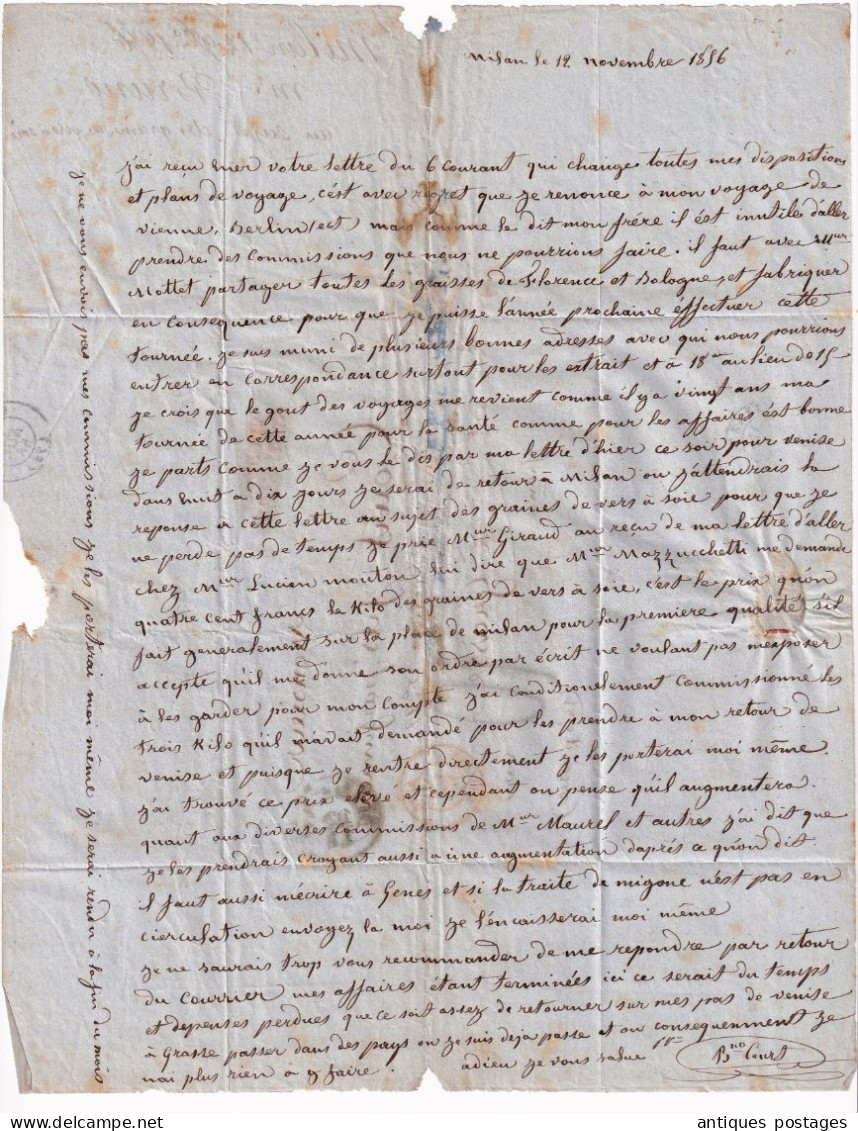 Milan le 12 novembre 1856
j'ai reçu hier votre lettre du 6 Courant qui change toutes mes dispositions
et plans de voyage, c'est avec regret que je renonce à mon voyage de
vienne, Berlin (ect) mais comme le dit mon frére il ést innutile d'aller
prendre des Commissions que nous ne pourrions faire. il faut avec Mur
Mottet partager toutes les graisses de Florence et Bologne, et fabriquer
en Consequence pour que je puisse l'année prochaine éffectuer cette
tournée. je suis muni de plusieurs bonnes adresses avec qui nous pourrions
entrer en Correspondance surtout pour les extrait et à 18 au lieu de 15
je crois que le gout des voyages me revient comme il y a vingt ans ma
tournée de cette année pour la santé comme pour les affaires ést bonne
je parts comme je vous le dis par ma lettre d'hier ce soir pour venise
dans huit a dix jours je serai de retour à Milan ou j'attendrais la
reponse a cette lettre au sujet des graines de vers à soie pour que je
ne perde pas de temps je prie Mur Giraud au reçu de ma lettre d'aller
chez Mur Lucien mouton lui dire que Mur Mazzucchetti me demande
quatre cent francs le Kilo des graines de vers à soie, c'est le prix qu'on
fait generalement sur la place de milan pour la premiere qualité, s'il
accepte qu'il me donne son ordre par écrit ne voulant pas m'exposer
à les garder pour mon Compte j'ai Conditionelement commissionné les
trois Kilo qu'il m'avait demandé pour les prendre à mon retour de
venise et puisque je rentre directement je les porterai moi même.
j'ai trouvé ce prix elevé et cependant on pense qu'il augmentera.
quant aux diverses Commissions de Mur Maurel et autres j'ai dit que
je les prendrais croyant aussi a une augmentation d'apris ce qu'on dit
il faut aussi m'écrire à Genes et si la traite de migone n'est pas en
cierculation envoyez la moi je l'encaisserai moi même
je ne saurais trop vous recommander de me repondre par retour
du Courrier mes affaires étant terminées ici ce serait du temps
et depenses perdues que ce soit assez de retourner sur mes pas de venise
à Grasse passer dans des pays ou je suis deja passe et ou consequenment je
n'ai plus rien a y faire. adieu je vous salue
Bno Court
je ne vous envois pas mes Commissions je les porterai moi même je serai rendu à la fin du mois
antiques postages